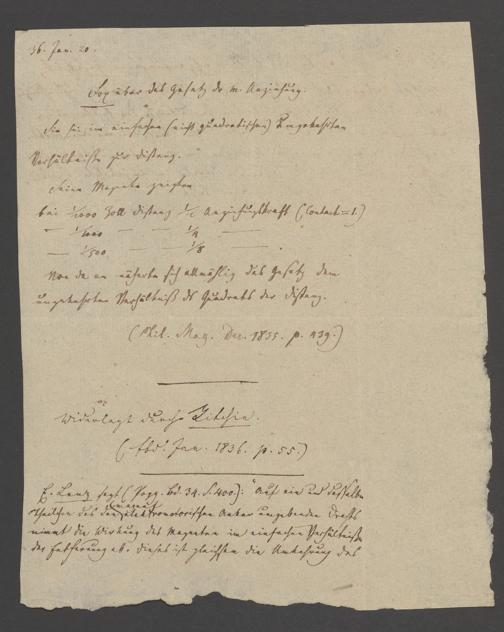 36. Jan. 20.
Fox über das Gesetz der m. Anziehung.
Sie sei im einfachen (nicht quadratischen) umgekehrten
Verhältnisse zur Distanz.
Seine Magnete zeigten
bei 1/1000 Zoll Distanz 1/2 Anziehungskraft (Contact = 1.)
— — — 1/4 —
— 1/500 — — 1/8 —
Von da an näherte sich allmählig das Gesetz dem
umgekehrten Verhältniß des Quadrats der Distanz.
(Phil. Mag. Dec. 1835. p. 439.)
Widerlegt durch Ritchie.
(Ebd. Jan. 1836. p. 55.)
E. Lenz sagt (Pogg. Bd. 34. S. 400.): "Auf ein und dasselbe
Theilchen des den Anker umgebenden Drahts
nimmt die Wirkung des Magneten im einfachen Verhältnisse
der Entfernung ab. Dieses ist gleichsam die Umkehrung des